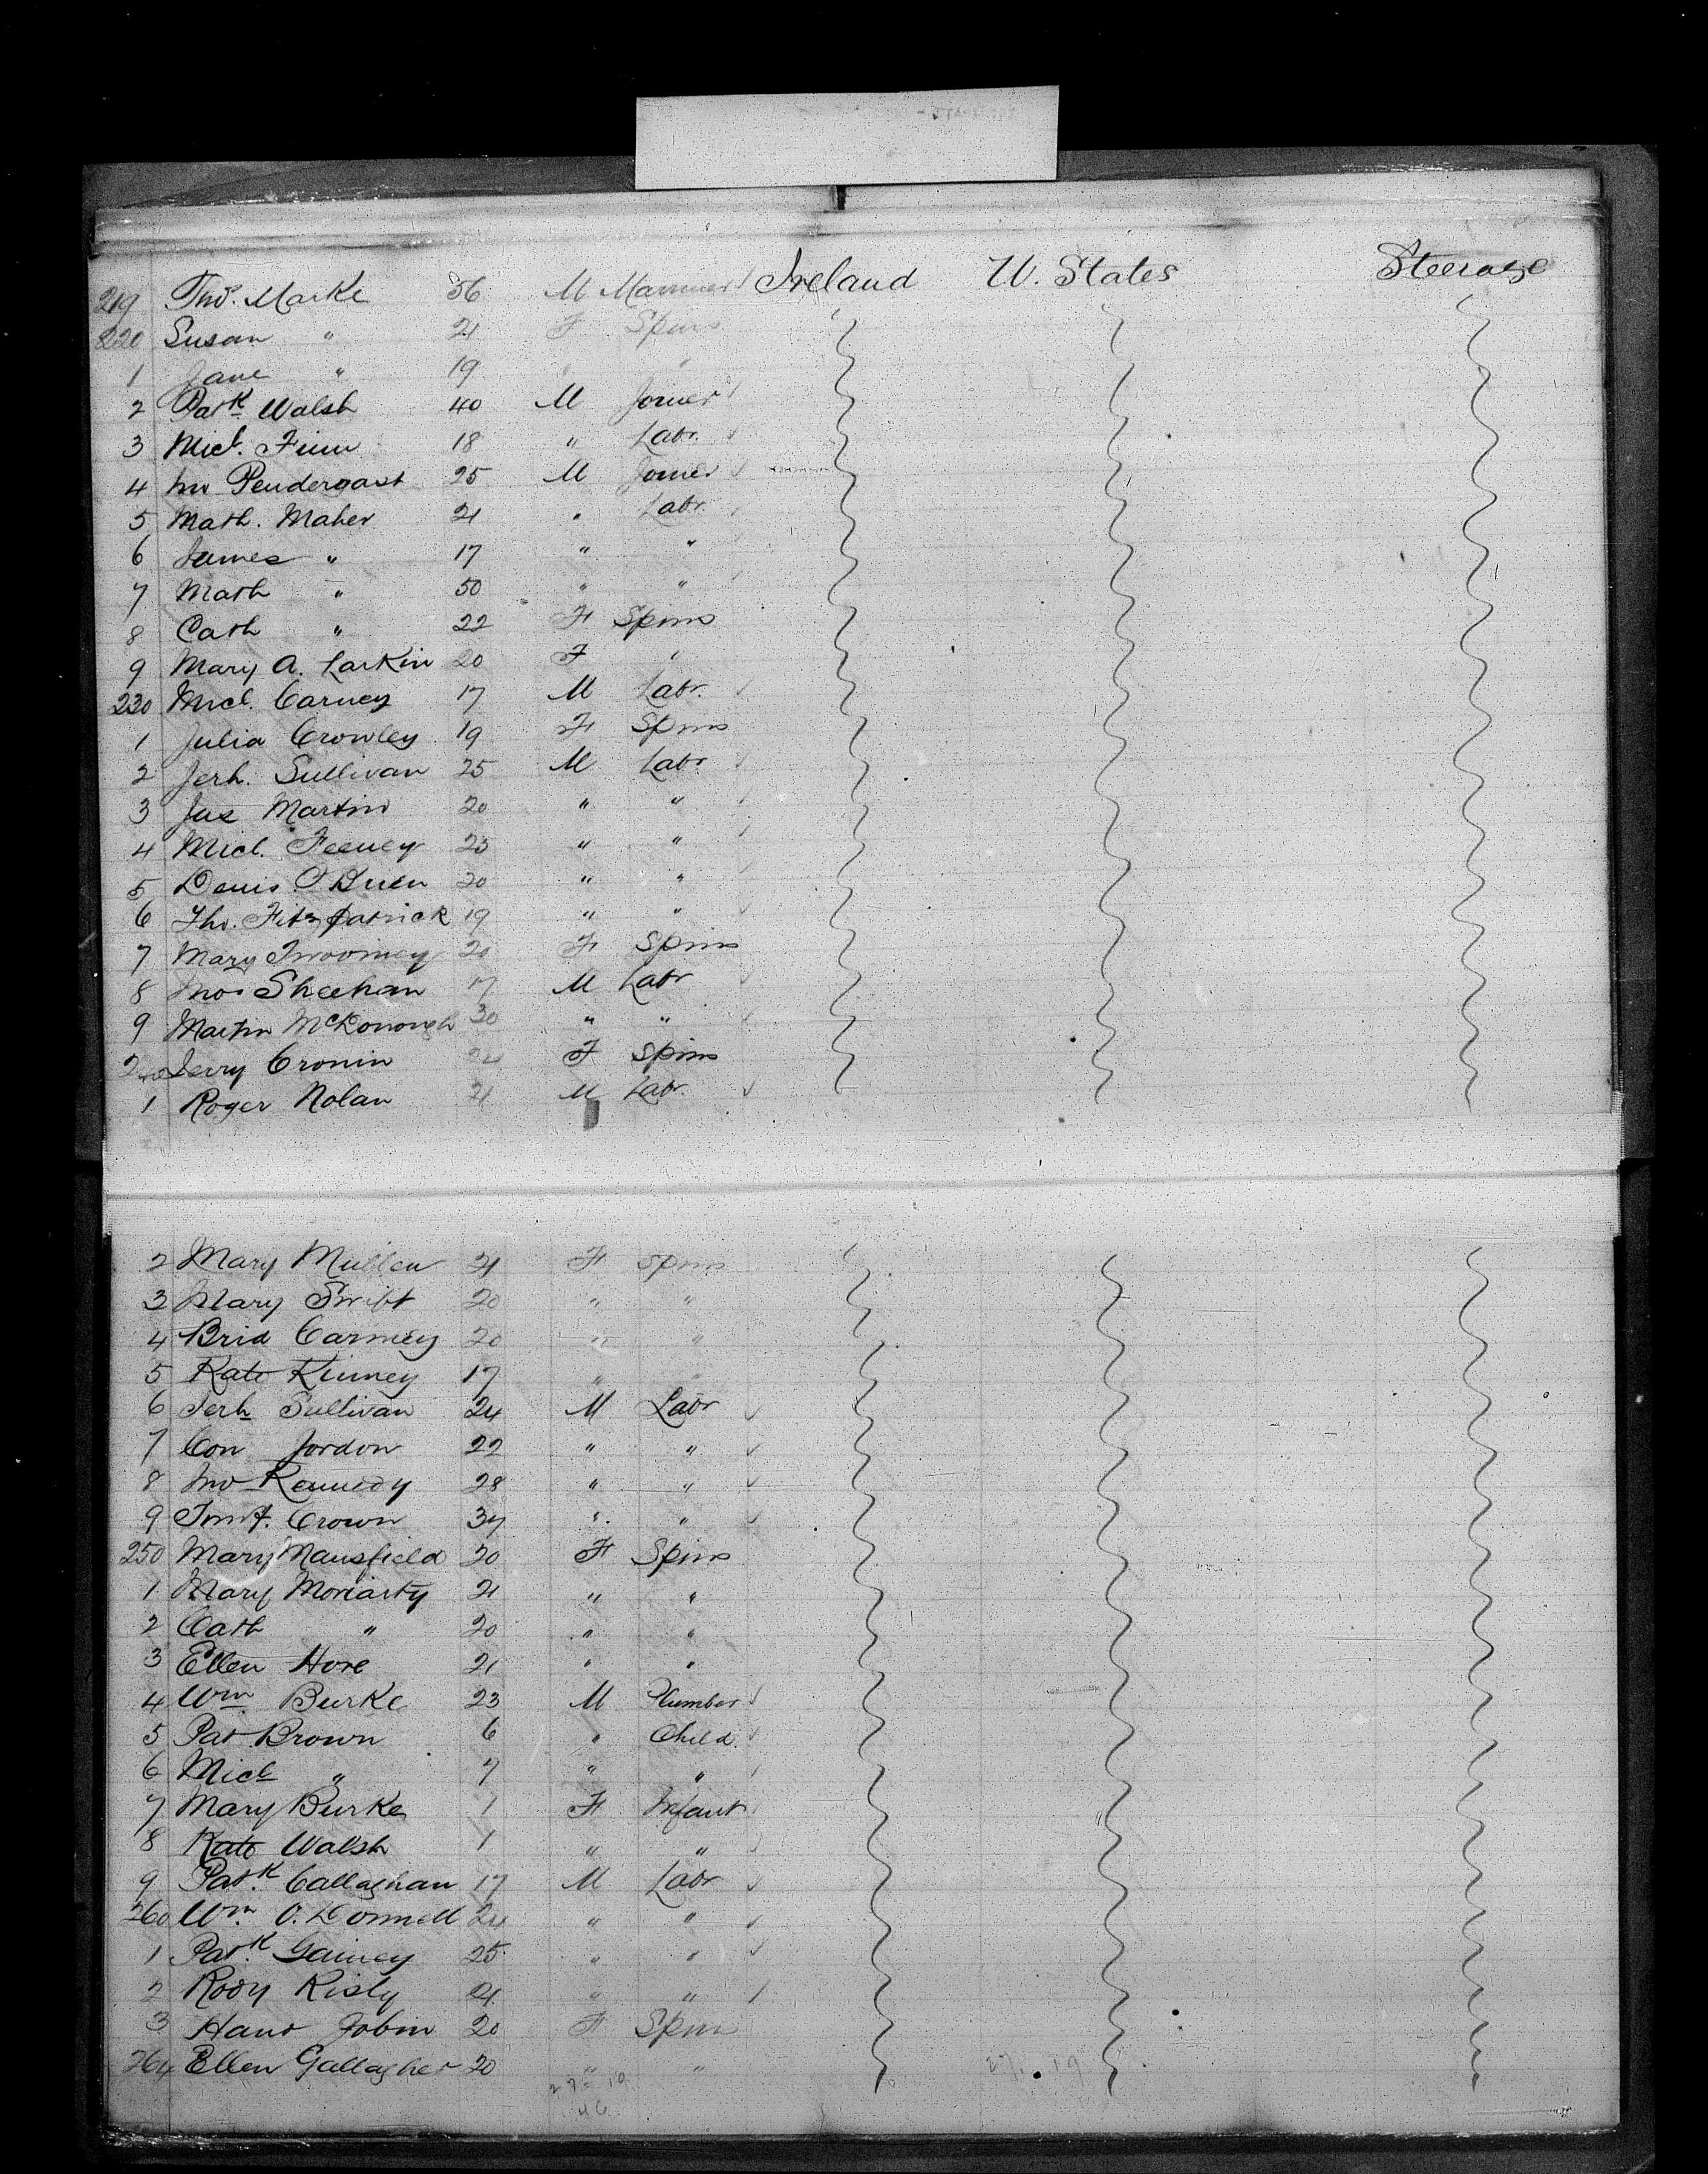 219 Tho. Marke 56 M Mariner Ireland U. States Steerage
220 Susan " 21 F Spins
1 Jane " 19 " "
2 Patk Walsh 40 M Joiner
3 Micl. Finn 18 " Labr.
4 Jno Pendergast 25 M Joiner
5 Math. Maher 21 " Labr.
6 James " 17 " "
7 Math " 50 " "
8 Cath " 22 F Spins
9 Mary A. Larkin 20 F "
230 Micl. Carney 17 M Labr.
1 Julia Crowley 19 F Spins
2 Jerh. Sullivan 25 M Labr
3 Jas Martin 20 " "
4 Micl. Feeney 25 " "
5 Denis O'Brien 20 " "
6 Tho. Fitzpatrick 19 " "
7 Mary Twoomey 20 F Spins
8 Sheehan 17 M Labr
9 Martin McDonough 30 " "
240 Jerry Cronin 24 F Spins
1 Roger Nolan 21 M Labr.
2 Mary Mullen 21 F Spins
3 Mary Swift 20 " "
4 Brid Carney 20 " "
5 Kate Kinney 17 " "
6 Jerh Sullivan 24 M Labr
7 Con Jordon 22 " "
8 Jno Kennedy 28 " "
9 Crown 34 " "
250 Mary Mansfield 20 F Spins
1 Mary Moriarty 21 " "
2 Cath " 20 " "
3 Ellen Hore 21 " "
4 Wm. Burke 23 M Plumber
5 Pat Brown 6 " Child.
6 Micl " 7 " "
7 Mary Burke 1 F Infant
8 Kate Walsh 1 " "
9 Patk. Callaghan 17 M Labr
260 Wm. O. Donnell 24 " "
1 Patk. Gainey 25 " "
2 Rody Risly 21 " "
3 Hano Jobin 20 F Spins
264 Ellen Gallagher 20 " "
27 19 27 . 19
46